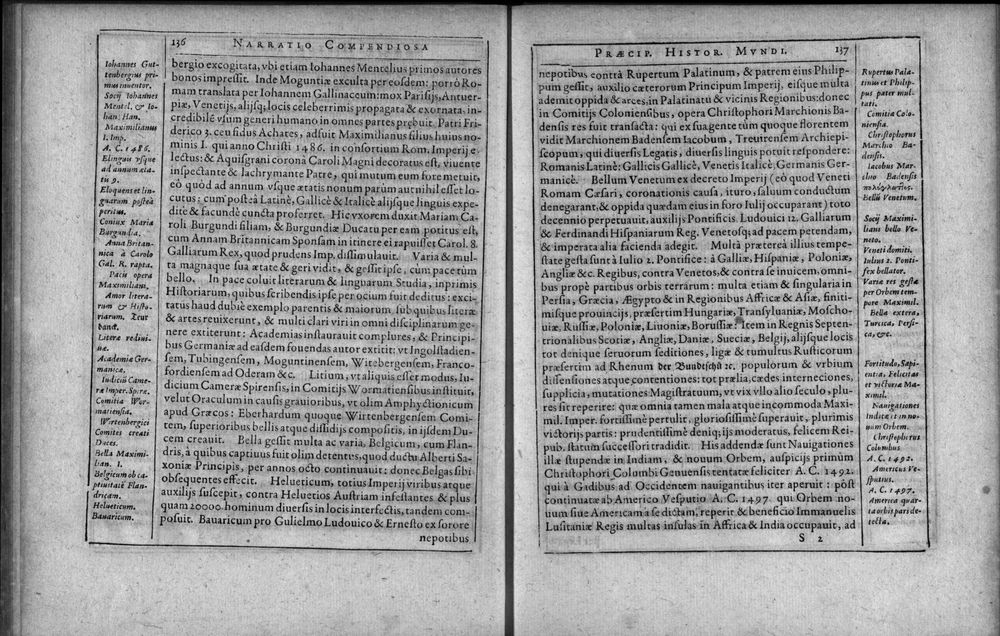 136 NARRATIO COMPENDIOSA
Iohannes Gut-
tenbergius pri-
mus inventor.
Socij Iohannes
Mentel. & Io-
han; Han.
Maximilianus
I. Imp.
A. C. 1486.
Elinguis vsque
ad annum æta-
tis 9.
Eloquens et lin-
guarum posteà
peritus.
Coniux Maria
Burgundia.
Anna Britan-
nica à Carolo
Gal. R. rapta.
Pacis opera
Maximiliani.
Amor litera-
rum & Histo-
riarum.
Literæ redivi-
uæ.
Academiæ Ger-
manicæ.
Iudicij Came-
ræ Imper. Spiræ.
Comitia Wor-
matiensia.
Wirtenbergici
Comites creati
Duces.
Bella Maximi-
lian. I.
Belgicum ob ca-
ptiuitatẽ Flan-
dricam.
Helueticum.
Bauaricum.
bergio excogitata, vbi etiam Iohannes Mentelius primos autores
bonos impressit. Inde Moguntiæ exculta per eosdem: porrò Ro-
mam translata per Iohannem Gallinaceum: mox Parisijs, Antuer-
piæ, Venetijs, alijsq; locis celeberrimis propagata & exornata, in-
credibilẽ vsum generi humano in omnes partes præbuit. Patri Fri-
derico 3. ceu fidus Achates, adfuit Maximilianus filius huius no-
minis I. qui anno Christi 1486. in consortium Rom. Imperij e-
lectus: & Aquisgrani coronâ Caroli Magni decoratus est, viuente
inspectante & lachrymante Patre, qui mutum eum fore metuit,
eò quòd ad annum vsque ætatis nonum parùm aut nihil esset lo-
cutus: cum posteà Latinè, Gallicè & Italicè alijsque linguis expe-
ditè & facundè cuncta proferret. Hic vxorem duxit Mariam Ca-
roli Burgundi filiam, & Burgundiæ Ducatu per eam potitus est,
cum Annam Britannicam Sponsam in itinere ei rapuisset Carol. 8.
Galliarum Rex, quod prudens Imp. dissimulauit. Varia & mul-
ta magnaque sua ætate & geri vidit, & gessit ipse, cùm pace tùm
bello. In pace coluit literarum & linguarum Studia, inprimis
Historiarum, quibus scribendis ipse per ocium fuit deditus: exci-
tatus haud dubiè exemplo parentis & maiorum, sub quibus literæ
& artes reuixerunt, & multi clari viri in omni disciplinarum ge-
nere extiterunt: Academias instaurauit complures, & Principi-
bus Germaniæ ad easdem fouendas autor extitit: vt Ingolstadien-
sem, Tubingensem, Moguntinensem, Witebergensem, Franco-
fordiensem ad Oderam &c. Litium, vt aliquis esset modus, Iu-
dicium Cameræ Spirensis, in Comitijs Wormatiensibus instituit,
velut Oraculum in causis grauioribus, vt olim Amphyctionicum
apud Græcos: Eberhardum quoque Wirtenbergensem Comi-
tem, superioribus bellis atque dissidijs compositis, in ijsdem Du-
cem creauit. Bella gessit multa ac varia, Belgicum, cum Flan-
dris, à quibus captiuus fuit olim detentus, quod ductu Alberti Sa-
xoniæ Principis, per annos octo continauit: donec Belgas sibi
obsequentes effecit. Helueticum, totius Imperij viribus atque
auxilijs suscepit, contra Heluetios Austriam infestantes & plus
quam 20000 hominum diuersis in locis interfectis, tandem com-
posuit. Bauaricum pro Gulielmo Ludouico & Ernesto ex sorore
nepotibus
PRÆCIP. HISTOR. MVNDI. 137
nepotibus contrà Rupertum Palatinum, & patrem eius Philip-
pum gessit, auxilio cæterorum Principum Imperij, eisque multa
ademit oppida & arces, in Palatinatu & vicinis Regionibus: donec
in Comitijs Coloniensibus, opera Christophori Marchionis Ba-
densis res fuit transacta: qui ex sua gente tùm quoque florentem
vidit Marchionem Badensem Iacobum, Treuirensem Archiepi-
scopum, qui diuersis Legatis, diuersis linguis potuit respondere:
Romanis Latinè: Gallicis Gallicè, Venetis Italicè, Germanis Ger-
manicè. Bellum Venetum ex decreto Imperij (eò quod Veneti
Romam Cæsari, coronationis causa, ituro, saluum conductum
denegarant, & oppida quædam eius in foro Iulij occuparant) toto
decennio perpetuauit, auxilijs Pontificis. Ludouici 12. Galliarum
& Ferdinandi Hispaniarum Reg. Venetosq; ad pacem petendam,
& imperata alia facienda adegit. Multà prætereà illius tempe-
state gesta sunt à Iulio 2. Pontifice: à Galliæ, Hispaniæ, Poloniæ,
Angliæ &c. Regibus, contra Venetos, & contra se inuicem, omni-
bus propè partibus orbis terrarum: multa etiam & singularia in
Persia, Græcia, Ægypto & in Regionibus Affricæ & Asiæ, finiti-
misque prouincijs, præsertim Hungariæ, Transyluaniæ, Moscho-
uiæ, Russiæ, Poloniæ, Liuoniæ, Borussiæ: Item in Regnis Septen-
trionalibus Scotiæ, Angliæ, Daniæ, Sueciæ, Belgij, alijsque locis
tot denique seruorum seditiones, ligæ & tumultus Rusticorum
præsertim ad Rhenum der Bundtschh ꝛc. populorum & vrbium
dissensiones atque contentiones: tot prælia, cædes interneciones,
supplicia, mutationes Magistratuum, vt vix vllo alio seculo, plu-
res sit reperire: quæ omnia tamen mala atque incommoda Maxi-
mil. Imper. fortissimè pertulit, gloriosissimè superauit, plurimis
victorijs partis: prudentissimè deniq; ijs moderatus, felicem Rei-
pub. statum successori tradidit. His addendæ sunt Nauigationes
illæ stupendæ in Indiam, & nouum Orbem, auspicijs primùm
Christophori Columbi Genuensis tentatæ feliciter A. C. 1492.
qui à Gadibus ad Occidentem nauigantibus iter aperuit: pòst
continuatæ ab Americo Vesputio A. C. 1497. qui Orbem no-
uum siue Americam à se dictam, reperit, & beneficio Immanuelis
Lusitaniæ Regis multas insulas in Affrica & India occupauit, ad
S 2
Rupertus Pala-
tinus et Philip-
pus pater mul-
tati.
Comitia Colo-
niensia.
Christophorus
Marchio Ba-
densis.
Iacobus Mar-
chio Badensis
πολύγλωττος.
Bellũ Venetum.
Socij Maximi-
liani bello Ve-
neto.
Veneti domiti.
Iulius 2. Ponti-
fex bellator.
Varia res gestæ
per Orbem tem-
pore Maximil.
Bella extera,
Turcica, Persi-
ca, &c.
Fortitudo, Sapi-
entia, Felicitas
et victoria Ma-
ximil.
Nauigationes
Indicæ et in no-
uum Orbem.
Christophorus
Columbus.
A. C. 1492.
Americus Ve-
sputius.
A. C. 1497.
America quar-
ta orbis pars de-
tecta.